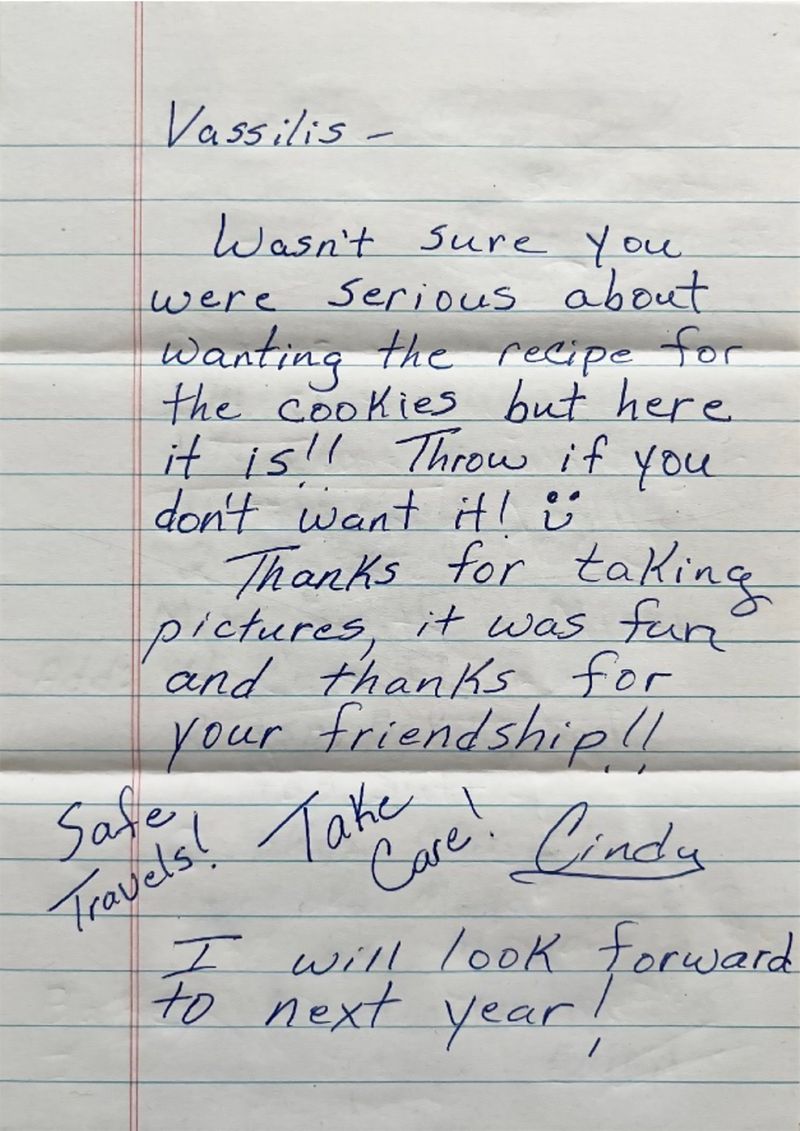 Vassilis –
Wasn't sure you
were serious about
wanting the recipe for
the cookies but here
it is!! Throw if you
don't want it! ü
Thanks for taking
pictures, it was fun
and thanks for
your friendship!!
Safe
Travels!
Take
Care!
Cindy
I will look forward
to next year!